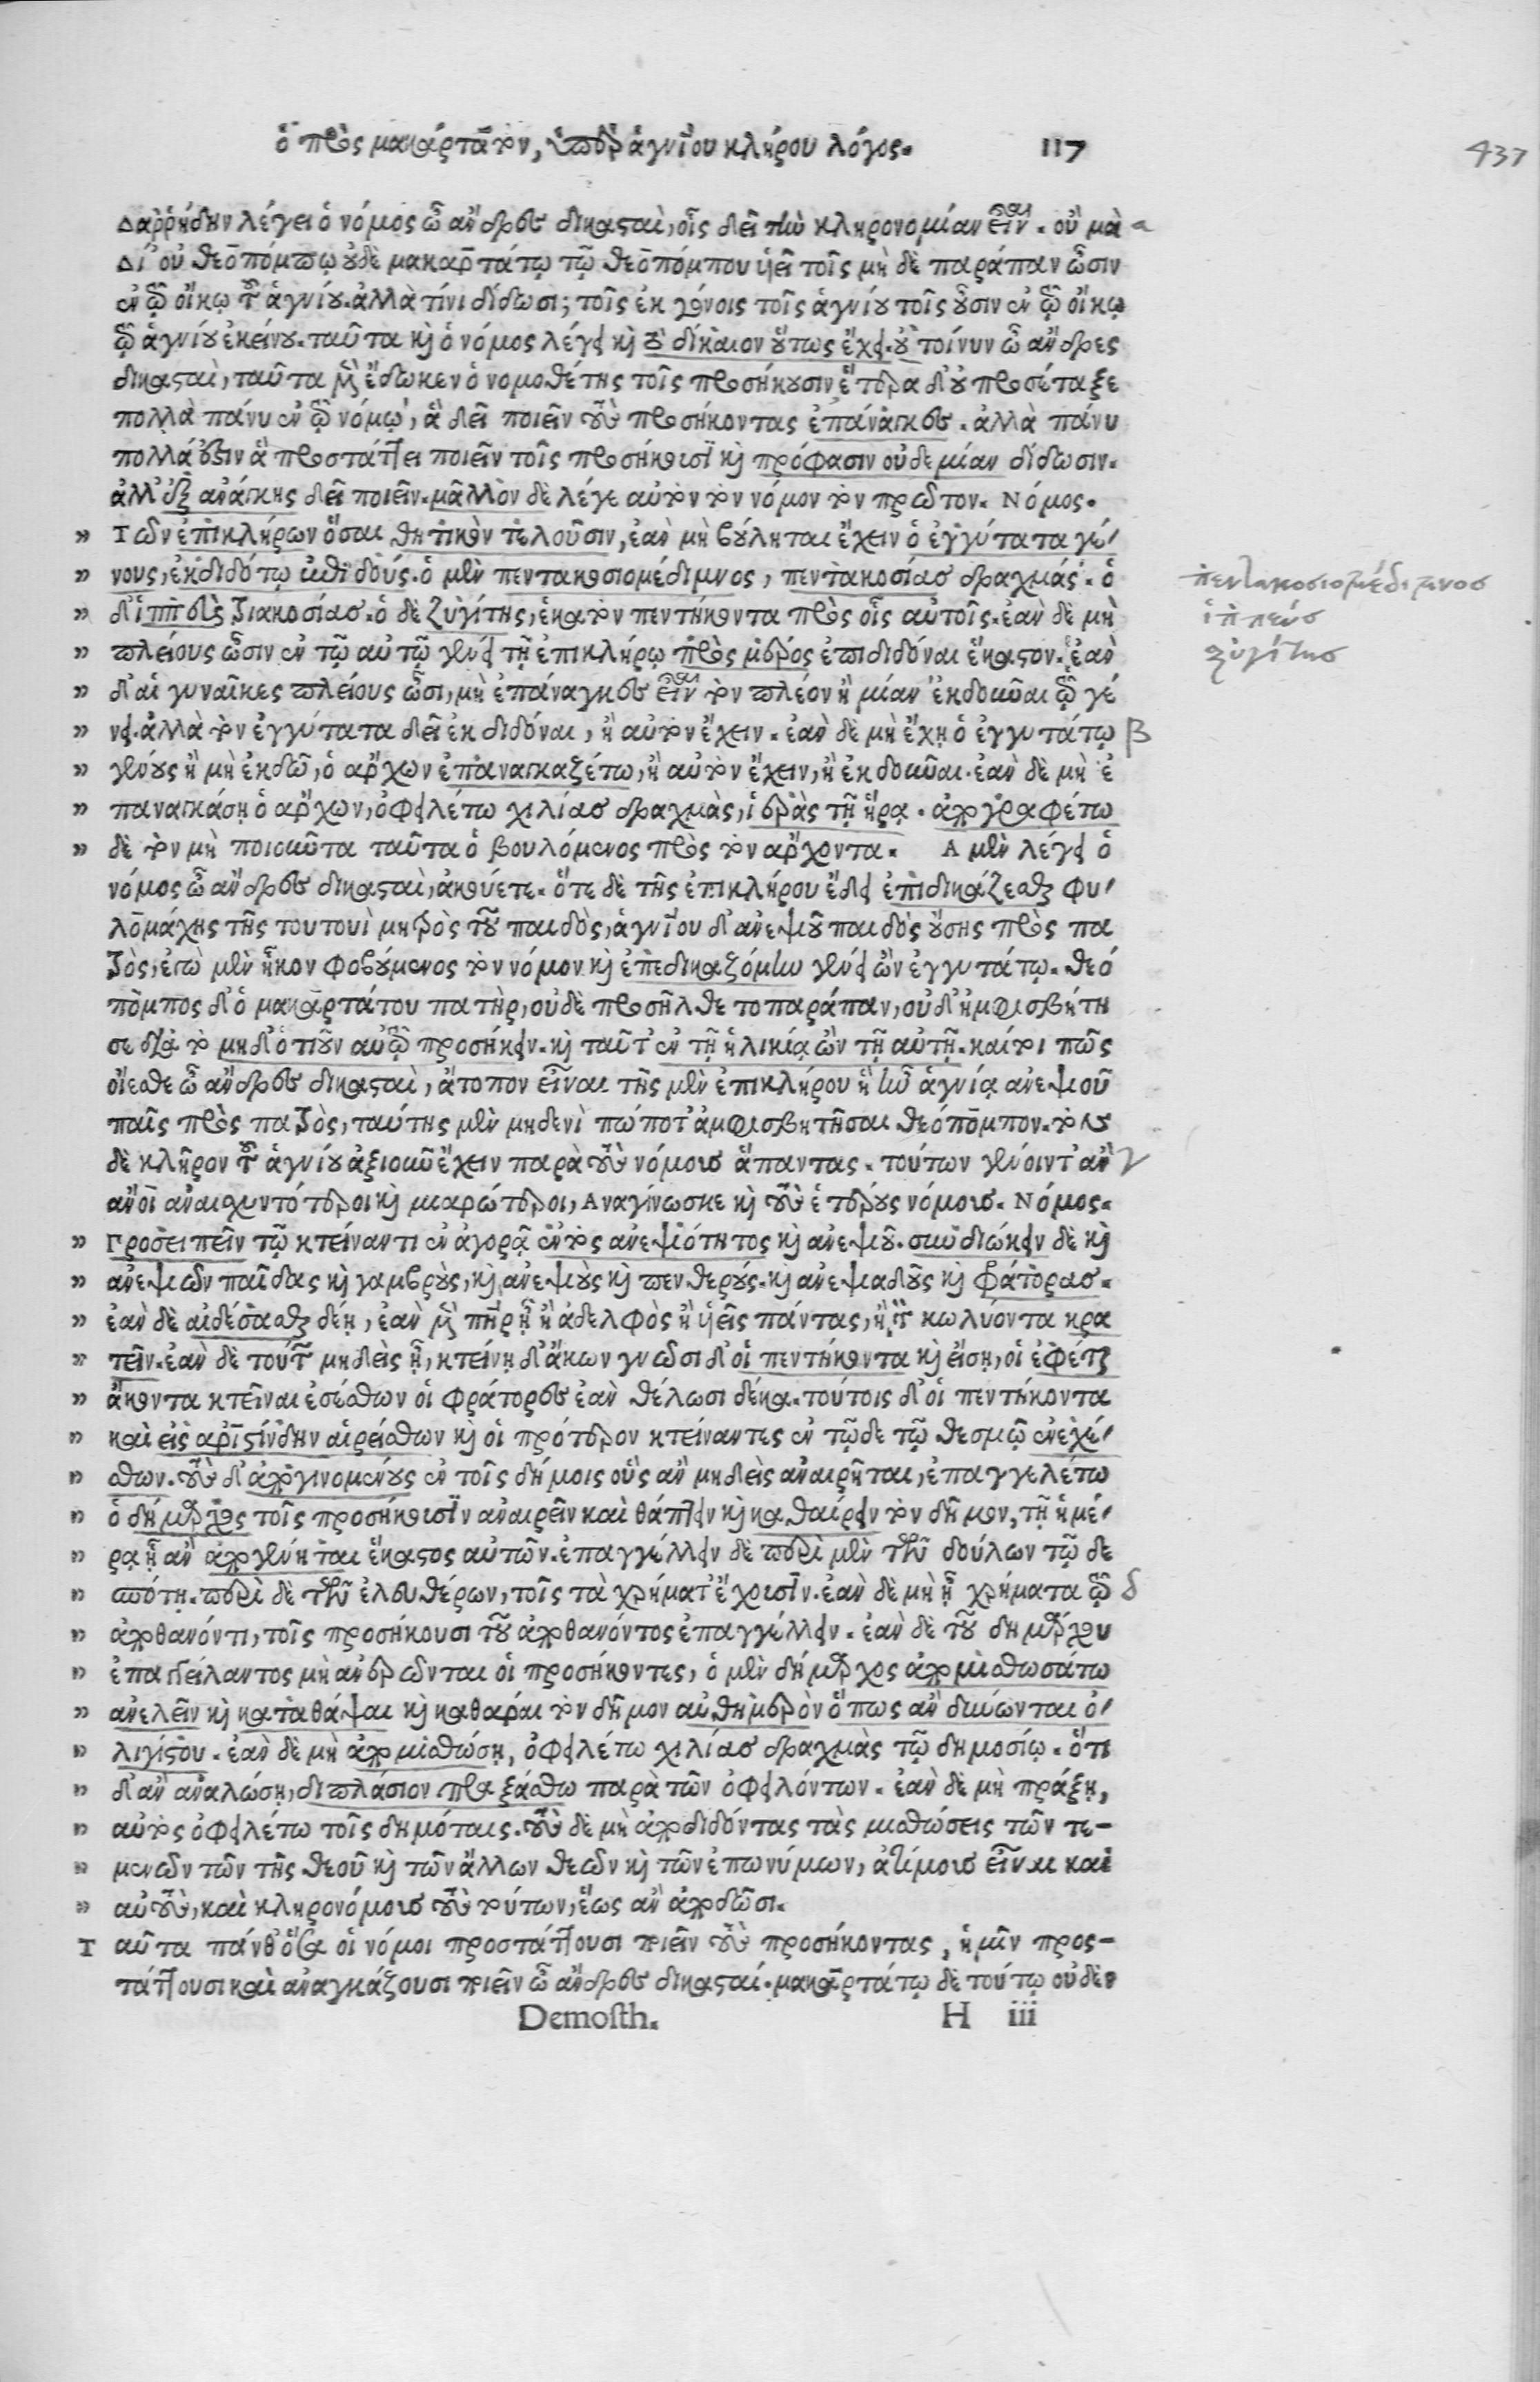 ὁ πρὸς μακάρτατον, περὶ ἁγνίου κλήρου λόγος. 117
437
Διαρρήδην λέγει ὁ νόμος ὦ ἄνδρες δικασταὶ, οἷς δεῖ τὴν κληρονομίαν εἶναι. οὐ μὰ α
Δί' οὐ θεοπόμπῳ οὐδὲ μακαρτάτῳ τῷ θεοπόμπου υἱεῖ τοῖς μὴ δὲ παράπαν ὦσιν
ἐν τῷ οἴκῳ τοῦ ἁγνίου. ἀλλὰ τίνι δίδωσι; τοῖς ἐκ γόνοις τοῖς ἁγνίου τοῖς οὖσιν ἐν τῷ οἴκῳ
τῷ ἁγνίου ἐκείνου. ταῦτα καὶ ὁ νόμος λέγει καὶ τὸ δίκαιον οὕτως ἔχει. οὐ τοίνυν ὦ ἄνδρες
δικασταὶ, ταῦτα μὲν ἔδωκεν ὁ νομοθέτης τοῖς προσήκουσιν ἕτερα δ' οὐ προσέταξε
πολλὰ πάνυ ἐν τῷ νόμῳ, ἃ δεῖ ποιεῖν τοὺς προσήκοντας ἐπάναγκες. ἀλλὰ πάνυ
πολλά ἐστιν ἃ προστάττει ποιεῖν τοῖς προσήκουσι καὶ πρόφασιν οὐδεμίαν δίδωσιν.
ἀλλ' ἐξ ἀνάγκης δεῖ ποιεῖν. μᾶλλον δὲ λέγε αὐτὸν τὸν νόμον τὸν πρῶτον. Νόμος.
» Τῶν ἐπικλήρων ὅσαι θητικὸν τελοῦσιν, ἐὰν μὴ βούληται ἔχειν ὁ ἐγγύτατα γέ-
» νους, ἐκδιδότω ἐπιδούς. ὁ μὲν πεντακοσιομέδιμνος, πεντακοσίας δραχμάς. ὁ
» δ' ἱππεὺς τριακοσίας. ὁ δὲ ζυγίτης, ἑκατὸν πεντήκοντα πρὸς οἷς αὐτοῖς. ἐὰν δὲ μὴ
» πλείους ὦσιν ἐν τῷ αὐτῷ γένει τῇ ἐπικλήρῳ πρὸς μέρος ἐπιδιδόναι ἕκαστον. ἐὰν
» δ' αἱ γυναῖκες πλείους ὦσι, μὴ ἐπάναγκες εἶναι τὸν πλέον ἢ μίαν ἐκδοῦναι τῷ γέ
» νει. ἀλλὰ τὸν ἐγγύτατα δεῖ ἐκδιδόναι, ἢ αὐτὸν ἔχειν. ἐὰν δὲ μὴ ἔχῃ ὁ ἐγγυτάτω β
» γένους ἢ μὴ ἐκδῶ, ὁ ἄρχων ἐπαναγκαζέτω, ἢ αὐτὸν ἔχειν, ἢ ἐκδοῦναι. ἐὰν δὲ μὴ ἐ
» παναγκάσῃ ὁ ἄρχων, ὀφειλέτω χιλίας δραχμὰς, ἱερὰς τῇ ἥρᾳ. ἀπογραφέτω
» δὲ τὸν μὴ ποιοῦντα ταῦτα ὁ βουλόμενος πρὸς τὸν ἄρχοντα. Α μὲν λέγει ὁ
νόμος ὦ ἄνδρες δικασταὶ, ἀκούετε. ὅτε δὲ τῆς ἐπικλήρου ἔδει ἐπιδικάζεσθαι φυ-
λομάχης τῆς τουτουὶ μητρὸς τοῦ παιδὸς, ἁγνίου δ' ἀνεψιοῦ παιδὸς οὔσης πρὸς πα
τρὸς, ἐγὼ μὲν ἧκον φοβούμενος τὸν νόμον καὶ ἐπεδικαζόμην γένει ὢν ἐγγυτάτω. θεό
πομπος δ' ὁ μακαρτάτου πατὴρ, οὐδὲ προσῆλθε τοπαράπαν, οὐδ' ἠμφισβήτη
σε διὰ τὸ μηδ' ὁτιοῦν αὐτῷ προσήκειν. καὶ ταῦτ' ἐν τῇ ἡλικίᾳ ὢν τῇ αὐτῇ. καίτοι πῶς
οἴεσθε ὦ ἄνδρες δικασταὶ, ἄτοπον εἶναι τῆς μὲν ἐπικλήρου ἣ ἦν ἁγνίᾳ ἀνεψιοῦ
παῖς πρὸς πατρὸς, ταύτης μὲν μηδενὶ πώποτ' ἀμφισβητῆσαι θεόπομπον. τὸν
δὲ κλῆρον τοῦ ἁγνίου ἀξιοῦν ἔχειν παρὰ τοὺς νόμους ἅπαντας. τούτων γένοιντ' ἂν γ
ἄνοι ἀναισχυντότεροι καὶ μιαρώτεροι, Αναγίνωσκε καὶ τοὺς ἑτέρους νόμους. Νόμος.
» Προσειπεῖν τῷ κτείναντι ἐν ἀγορᾷ ἐντὸς ἀνεψιότητος καὶ ἀνεψιοῦ. συνδιώκειν δὲ καὶ
» ἀνεψιῶν παῖδας καὶ γαμβροὺς, καὶ ἀνεψιοὺς καὶ πενθερούς. καὶ ἀνεψιαδοῦς καὶ φράτορας.
» ἐὰν δὲ αἰδέσασθαι δέῃ, ἐὰν μὲν πατὴρ ᾖ ἢ ἀδελφὸς ἢ υἱεῖς πάντας, ἢ τὸν κωλύοντα κρα
» τεῖν. ἐὰν δὲ τούτων μηδεὶς ᾖ, κτείνῃ δ' ἄκων γνῶσι δ' οἱ πεντήκοντα καὶ εἴσῃ, οἱ ἐφέται
» ἄκοντα κτεῖναι ἐσέσθων οἱ φράτορες ἐὰν θέλωσι δέκα. τούτοις δ' οἱ πεντήκοντα
» καὶ εἷς ἀριστίνδην αἱρείσθων καὶ οἱ πρότερον κτείναντες ἐν τῷδε τῷ θεσμῷ ἐνεχέ-
» σθων. τοὺς δ' ἀπογινομένους ἐν τοῖς δήμοις οὓς ἂν μηδεὶς ἀναιρῆται, ἐπαγγελέτω
» ὁ δήμαρχος τοῖς προσήκουσιν ἀναιρεῖν καὶ θάπτειν καὶ καθαίρειν τὸν δῆμον, τῇ ἡμέ-
» ρᾳ ᾗ ἂν ἀπογένηται ἕκαστος αὐτῶν. ἐπαγγέλλειν δὲ περὶ μὲν τῶν δούλων τῷ δε
» σπότῃ. περὶ δὲ τῶν ἐλευθέρων, τοῖς τὰ χρήματ' ἔχουσιν. ἐὰν δὲ μὴ ᾖ χρήματα τῷ δ
» ἀποθανόντι, τοῖς προσήκουσι τοῦ ἀποθανόντος ἐπαγγέλλειν. ἐὰν δὲ τοῦ δημάρχου
» ἐπαγγείλαντος μὴ ἀναιρῶνται οἱ προσήκοντες, ὁ μὲν δήμαρχος ἀπομισθωσάτω
» ἀνελεῖν καὶ καταθάψαι καὶ καθαρᾶι τὸν δῆμον αὐθημερὸν ὅπως ἂν δύνωνται ὀ-
» λιγίστου. ἐὰν δὲ μὴ ἀπομισθώσῃ, ὀφειλέτω χιλίας δραχμὰς τῷ δημοσίῳ. ὅτι
» δ' ἂν ἀναλώσῃ, διπλάσιον πραξάσθω παρὰ τῶν ὀφειλόντων. ἐὰν δὲ μὴ πράξῃ,
» αὐτὸς ὀφειλέτω τοῖς δημόταις. τοὺς δὲ μὴ ἀποδιδόντας τὰς μισθώσεις τῶν τε-
» μενῶν τῶν τῆς θεοῦ καὶ τῶν ἄλλων θεῶν καὶ τῶν ἐπωνύμων, ἀτίμους εἶναι καὶ
» αὐτοὺς, καὶ κληρονόμους τοὺς τούτων, ἕως ἂν ἀποδῶσι.
Ταῦτα πάνθ' ὅσα οἱ νόμοι προστάττουσι ποιεῖν τοὺς προσήκοντας, ἡμῖν προς-
τάττουσι καὶ ἀναγκάζουσι ποιεῖν ὦ ἄνδρες δικασταί. μακαρτάτῳ δὲ τούτῳ οὐδὲν
Demosth. H iii
πεντακοσιομέδιμνος
ἱππεύς
ζυγίτης